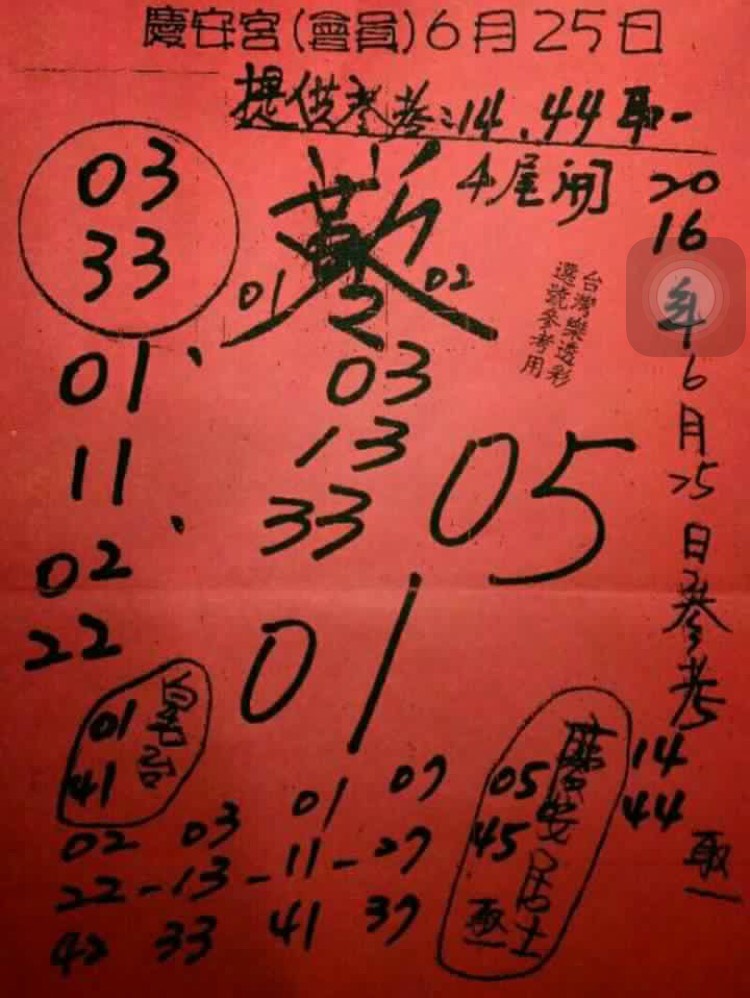 慶安宮(會員)6月25日
提供參考:14.44取一
4尾開
03
33
01
02
2
台灣樂透彩
選號參考用
2016年6月25日參考
14
44
取一
01、
11、
02
22
03
13
33
05
01
01
41
05
45
慶安居士
取一
02 03 01 07
22-13-11-27
42 33 41 37